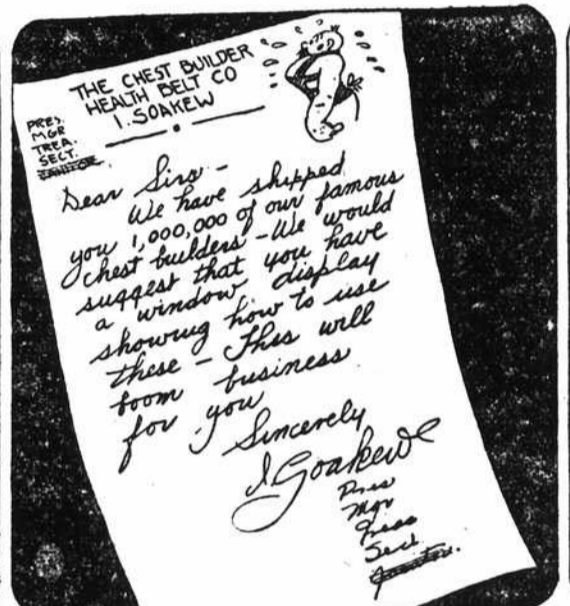 THE CHEST BUILDER
HEALTH BELT CO
I. SOAKEW
PRES.
MGR
TREA.
SECT.
JANITOR
Dear Sirs -
We have shipped
you 1,000,000 of our famous
chest builders - We would
suggest that you have
a window display
showing how to use
these - This will
boom business
for you
Sincerely
I Soakew
Pres
Mgr
Treas
Sect
Janitor.